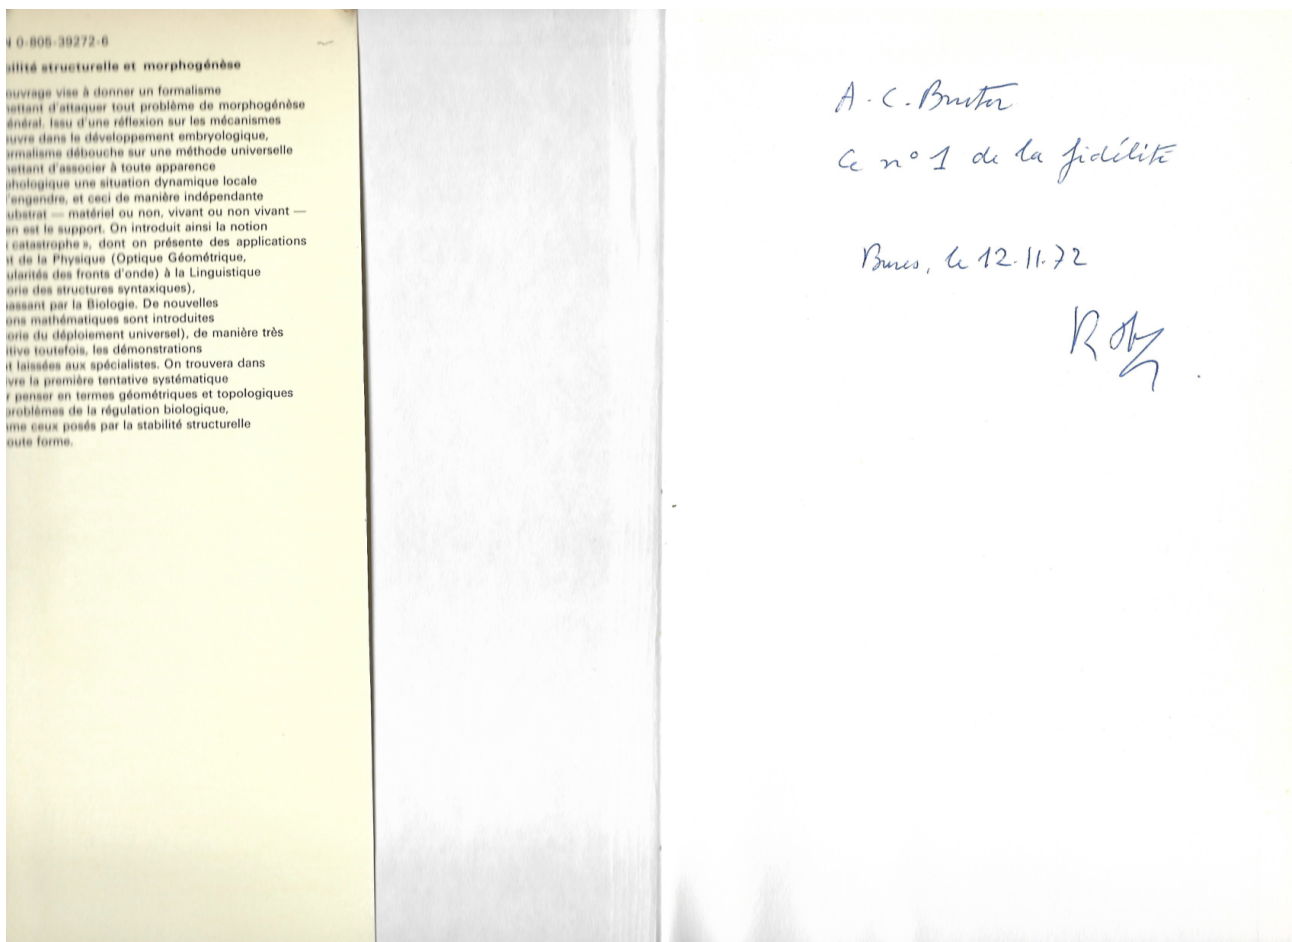 N 0-805-39272-6
bilité structurelle et morphogénèse
ouvrage vise à donner un formalisme
mettant d'attaquer tout problème de morphogénèse
énéral. Issu d'une réflexion sur les mécanismes
uvre dans le développement embryologique,
ormalisme débouche sur une méthode universelle
mettant d'associer à toute apparence
phologique une situation dynamique locale
l'engendre, et ceci de manière indépendante
ubstrat — matériel ou non, vivant ou non vivant —
en est le support. On introduit ainsi la notion
catastrophe », dont on présente des applications
t de la Physique (Optique Géométrique,
ularités des fronts d'onde) à la Linguistique
orie des structures syntaxiques),
passant par la Biologie. De nouvelles
ons mathématiques sont introduites
orie du déploiement universel), de manière très
itive toutefois, les démonstrations
t laissées aux spécialistes. On trouvera dans
vre la première tentative systématique
r penser en termes géométriques et topologiques
problèmes de la régulation biologique,
me ceux posés par la stabilité structurelle
oute forme.
A. C. Bruter
Ce n° 1 de la fidélité
Bures, le 12.11.72